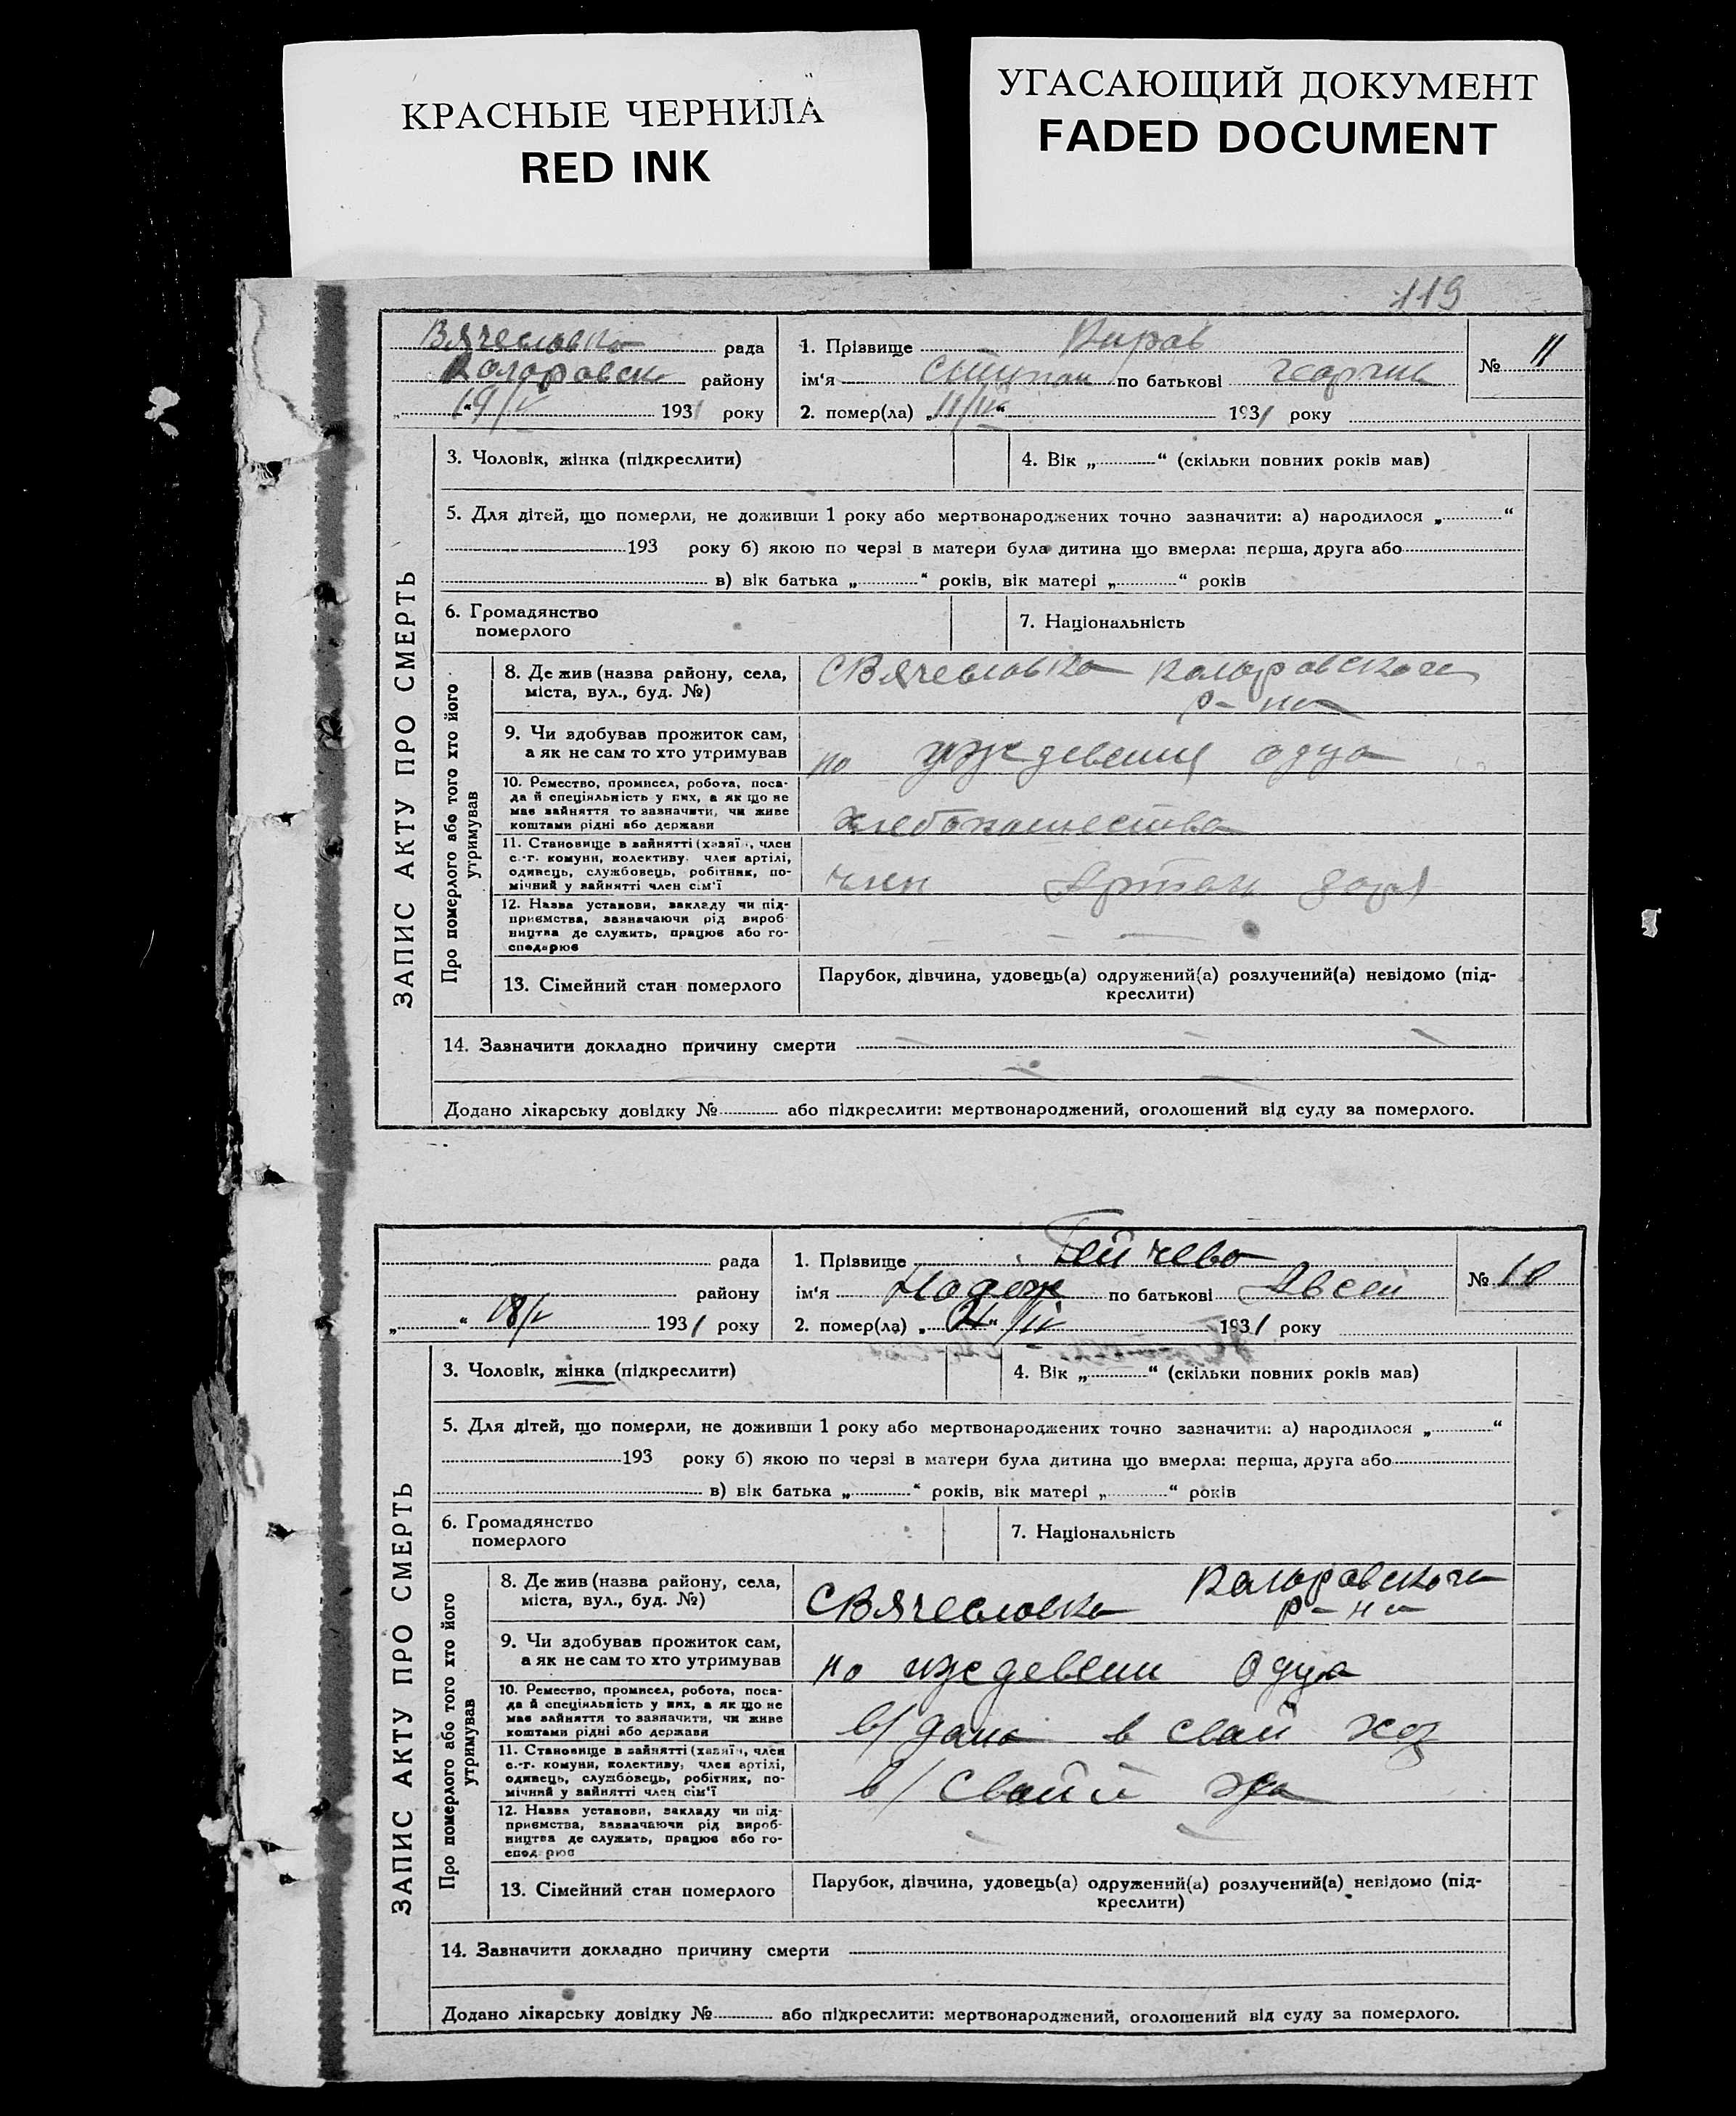 КРАСНЫЕ ЧЕРНИЛА
RED INK
УГАСАЮЩИЙ ДОКУМЕНТ
FADED DOCUMENT
119
ЗАПИС АКТУ ПРО СМЕРТЬ
Вячесловка рада
району
19/V 1931 року
1. Прізвище
ім‘я по батькові
№ 11
2. помер(ла) „11/IV“ 1931 року
3. Чоловік, жінка (підкреслити)
4. Вік „ “ (скільки повних років мав)
5. Для дітей, що померли, не доживши 1 року або мертвонароджених точно зазначити: а) народилося „ “
193 року б) якою по черзі в матери була дитина що вмерла: перша, друга або
в) вік батька „ “ років, вік матері „ “ років
6. Громадянство
померлого
7. Національність
Про померлого або того хто його
утримував
8. Де жив (назва району, села,
міста, вул., буд. №)
С Вячесловка
р-на
9. Чи здобував прожиток сам,
а як не сам то хто утримував
на
10. Ремество, промисел, робота, поса-
да й спеціяльність у них, а як що не
має зайняття то зазначити, чи живе
коштами рідні або держави
11. Становище в зайнятті (хазяїн, член
с.-г. комуни, колективу, член артілі,
одинець, службовець, робітник, по-
мічний у зайнятті член сім‘ї
член
12. Назва установи, закладу чи під-
приємства, зазначаючи рід вироб-
ництва де служить, працює або го-
сподарює
13. Сімейний стан померлого
Парубок, дівчина, удовець(а) одружений(а) розлучений(а) невідомо (під-
креслити)
14. Зазначити докладно причину смерти
Додано лікарську довідку № або підкреслити: мертвонароджений, оголошений від суду за померлого.
ЗАПИС АКТУ ПРО СМЕРТЬ
рада
району
„ “ 18/V 1931 року
1. Прізвище
ім‘я Надеж по батькові Авсей
№ 10
2. помер(ла) „ “ /IV 1931 року
3. Чоловік, жінка (підкреслити)
4. Вік „ “ (скільки повних років мав)
5. Для дітей, що померли, не доживши 1 року або мертвонароджених точно зазначити: а) народилося „ “
193 року б) якою по черзі в матери була дитина що вмерла: перша, друга або
в) вік батька „ “ років, вік матері „ “ років
6. Громадянство
померлого
7. Національність
Про померлого або того хто його
утримував
8. Де жив (назва району, села,
міста, вул., буд. №)
С Вячесловка
р-на
9. Чи здобував прожиток сам,
а як не сам то хто утримував
на
10. Ремество, промисел, робота, поса-
да й спеціяльність у них, а як що не
має зайняття то зазначити, чи живе
коштами рідні або держави
в/дома в свай хоз
11. Становище в зайнятті (хазяїн, член
с.-г. комуни, колективу, член артілі,
одинець, службовець, робітник, по-
мічний у зайнятті член сім‘ї
12. Назва установи, закладу чи під-
приємства, зазначаючи рід вироб-
ництва де служить, працює або го-
сподарює
13. Сімейний стан померлого
Парубок, дівчина, удовець(а) одружений(а) розлучений(а) невідомо (під-
креслити)
14. Зазначити докладно причину смерти
Додано лікарську довідку № або підкреслити: мертвонароджений, оголошений від суду за померлого.